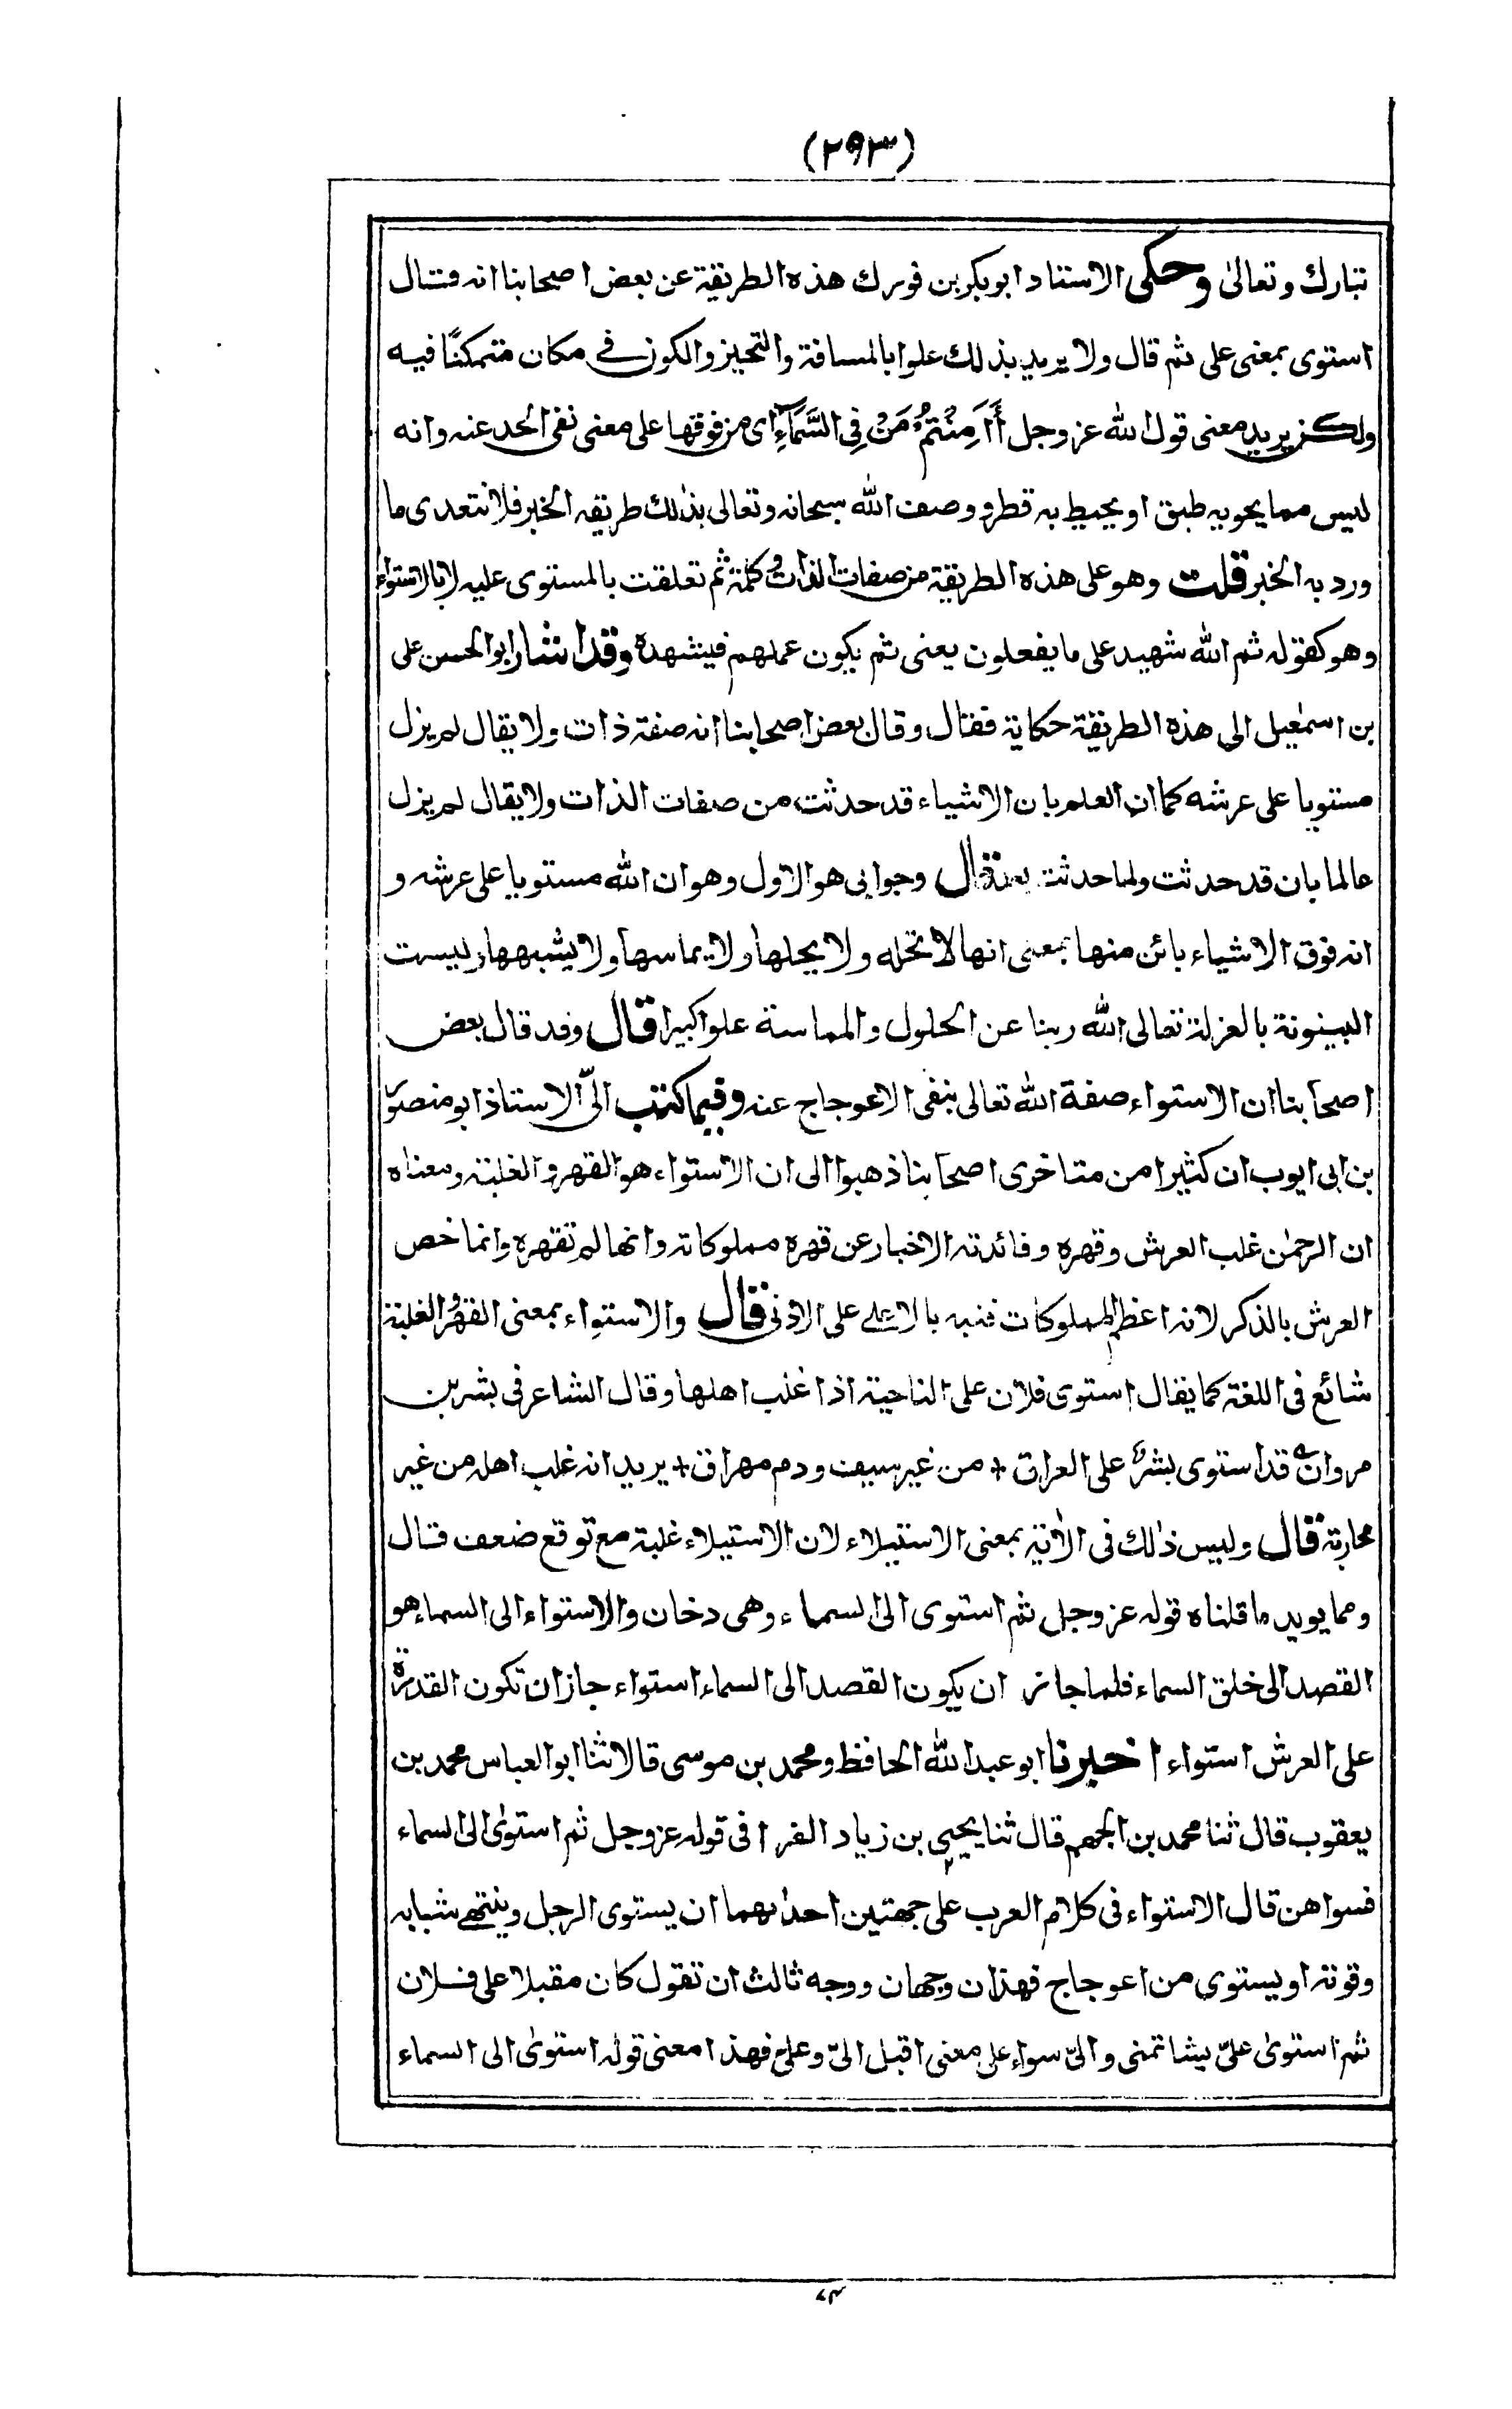 (۲۹۳)
تبارك وتعالىٰ وحكى الاستاد ابوبكر بن فورك هذه الطريقة عن بعض اصحابنا انه قتال
استوى بمعنى على ثم قال ولا يريد بذلك علوا بالمسافة والتحيز والكون في مكان متمكنًا فيه
ولكن يريد معنى قول الله عز وجل أَأَمِنْتُمْ مَنْ فِى السَّمَآءِ اى من فوقها على معنى نفى الحد عنه وانه
ليس مما يحويه طبق او يحيط به قطر ووصف الله سبحانه وتعالى بذلك طريقه الخبر فلا نتعدى ما
ورد به الخبر قلت وهو على هذه الطريقة من صفات الذات وكلمة ثم تعلقت بالمستوى عليه لا بالاستواء
وهو كقوله ثم الله شهيد على ما يفعلون يعنى ثم يكون عملهم فيشهده وقد اشار ابو الحسن على
بن اسمٰعيل الى هذه الطريقة حكاية فقال وقال بعض اصحابنا انه صفة ذات ولا يقال لم يزل
مستويا على عرشه كما ان العلم بان الاشياء قد حدثت من صفات الذات ولا يقال لم يزل
عالما بان قد حدثت ولما حدثت بعد قال وجوابى هو الاول وهو ان الله مستويا على عرشه و
انه فوق الاشياء بائن منها بمعنى انها لا تحله ولا يحلها ولا يماسها ولا يشبهها وليست
البينونة بالعزلة تعالى الله ربنا عن الحلول والمماسة علوا كبيرا قال وقد قال بعض
اصحابنا ان الاستواء صفة الله تعالى بنفى الاعوجاج عنه وفيما كتب الىّ الاستاذ ابو منصور
بن ابى ايوب ان كثيرا من متاخرى اصحابنا ذهبوا الى ان الاستواء هو القهر والغلبة ومعناه
ان الرحمٰن غلب العرش وقهره وفائدته الاخبار عن قهره مملوكاته وانها لم تقهره وانما خص
العرش بالذكر لانه اعظم المملوكات فنبه بالاعلى على الادنى قال والاستواء بمعنى القهر والغلبة
شائع فى اللغة كما يقال استوى فلان على الناحية اذا غلب اهلها وقال الشاعر فى بشر بن
مروان قد استوى بشر على العراق + من غير سيف ودم مهراق + يريد انه غلب اهله من غير
محاربة قال وليس ذٰلك فى الآية بمعنى الاستيلاء لان الاستيلاء غلبة مع توقع ضعف قتال
ومما يويد ما قلناه قوله عز وجل ثم استوى الى السماء وهى دخان والاستواء الى السماء هو
القصد الى خلق السماء فلما جاز ان يكون القصد الى السماء استواء جاز ان تكون القدرة
على العرش استواء اخبرنا ابو عبد الله الحافظ ومحمد بن موسى قالا ثنا ابو العباس محمد بن
يعقوب قال ثنا محمد بن الجهم قال ثنا يحيى بن زياد الفرا فى قوله عز وجل ثم استوىٰ الى السماء
فسواهن قال الاستواء فى كلام العرب على جهتين احدٰهما ان يستوى الرجل وينتهى شبابه
وقوته او يستوى من اعوجاج فهذان وجهان ووجه ثالث ان تقول كان مقبلا على فلان
ثم استوىٰ علىّ يشاتمنى والىّ سواء على معنى اقبل الىّ وعلىّ فهذا معنى قوله استوىٰ الى السماء